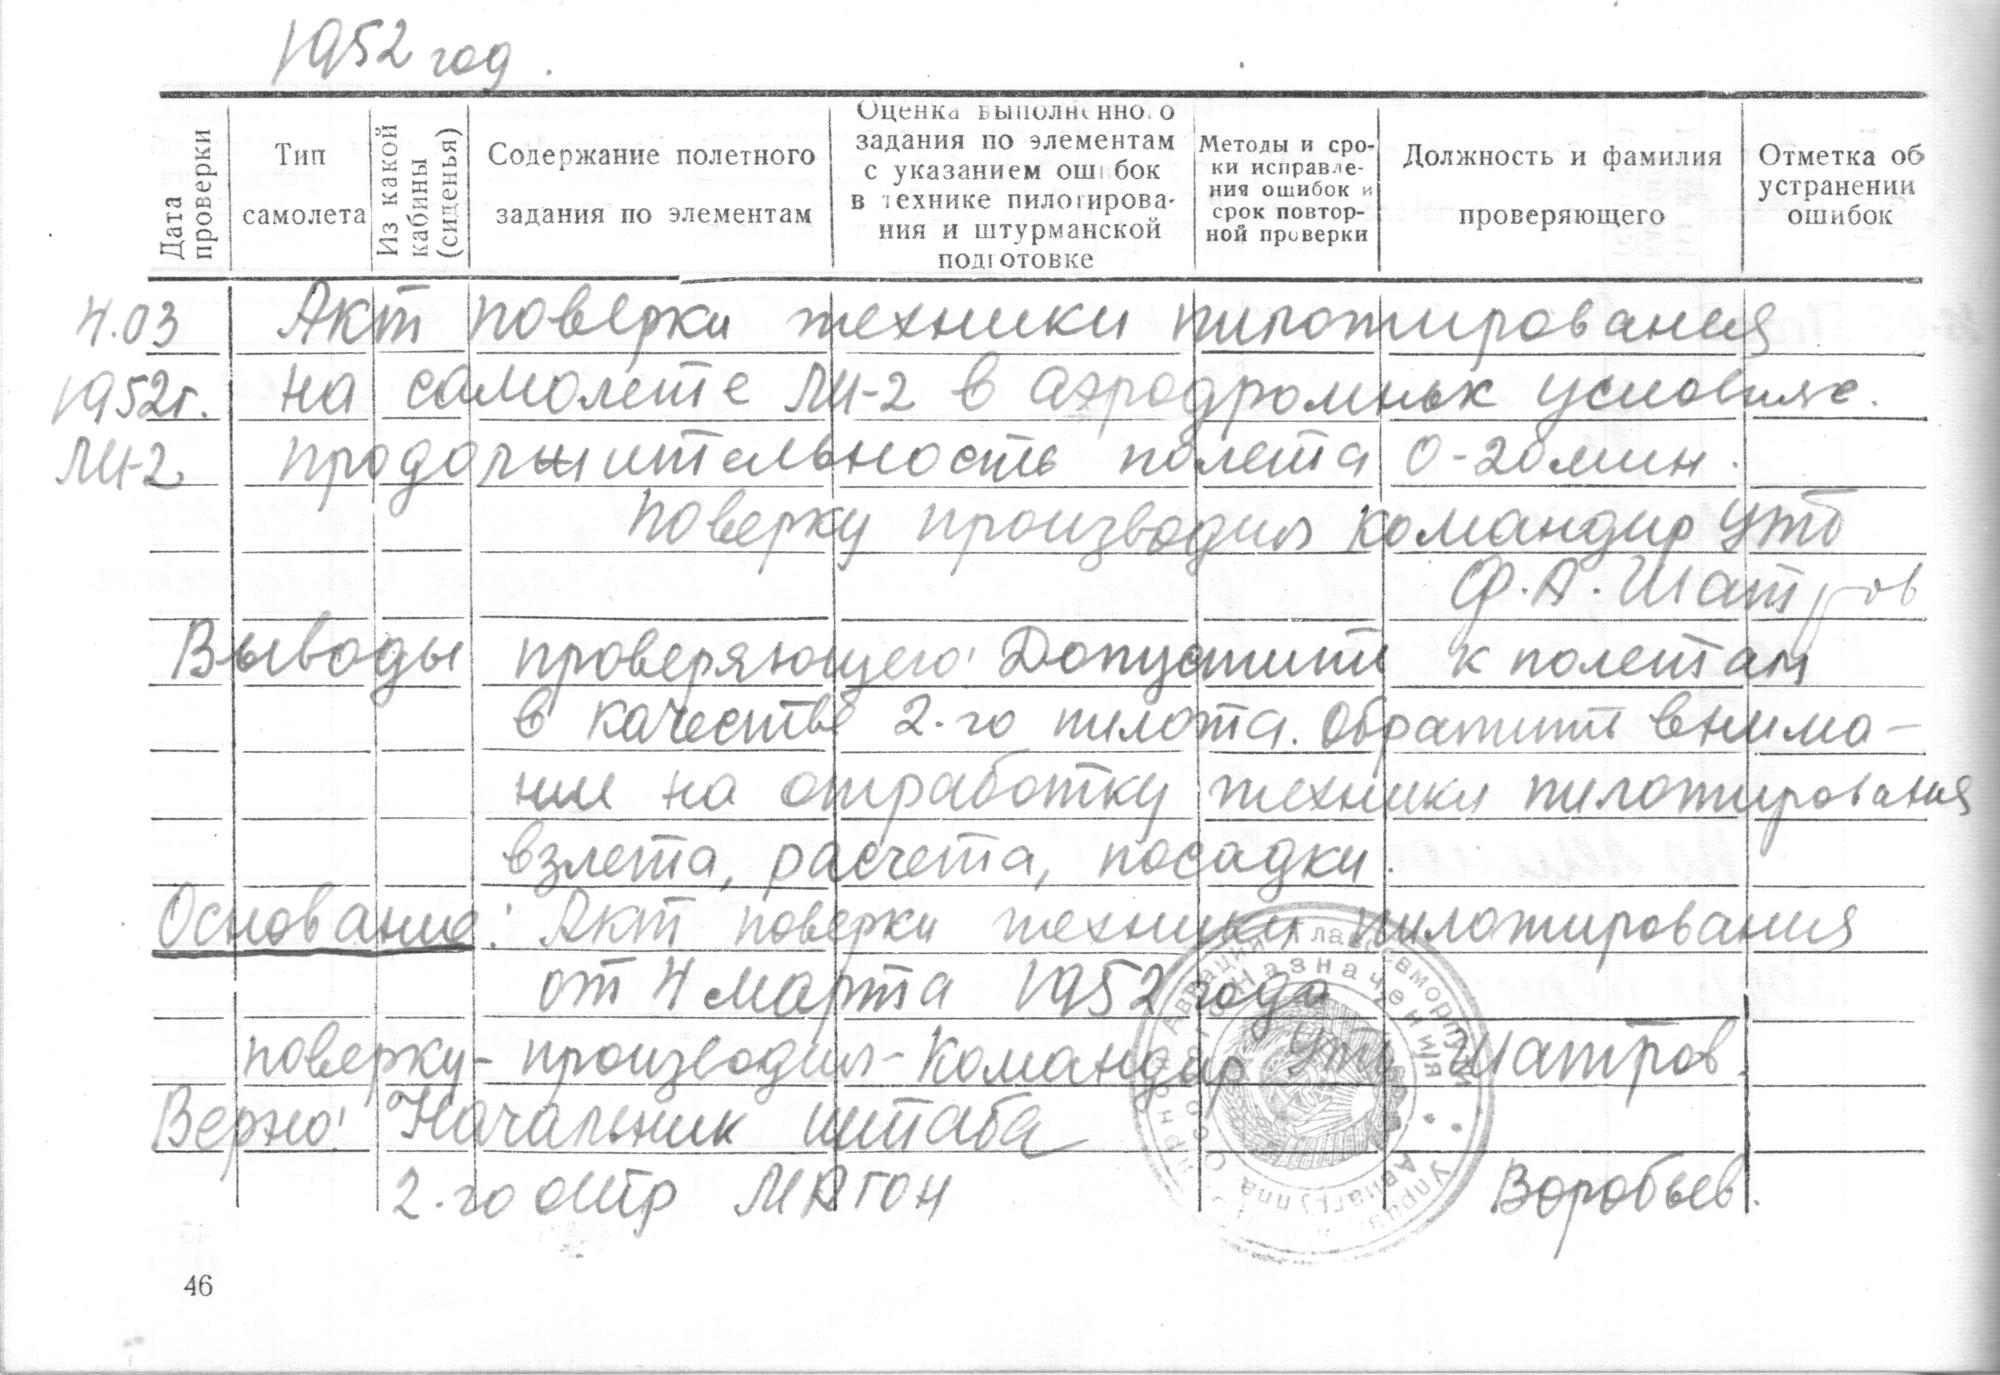 1952 год.
Дата проверки
Тип самолета
Из какой кабины (сиденья)
Содержание полетного задания по элементам
Оценка выполненного задания по элементам с указанием ошибок в технике пилотирова-ния и штурманской подготовке
Методы и сро-ки исправле-ния ошибок и срок повтор-ной проверки
Должность и фамилия проверяющего
Отметка об устранении ошибок
4.03 Акт поверки техники пилотирования
1952г. на самолете ЛИ-2 в аэродромных условиях.
ЛИ-2 продолжительность полета 0-20 мин.
Поверку производил командир УТО
Ф.А. Шатров
Выводы проверяющего: Допустить к полетам
в качестве 2-го пилота. Обратить внима-
ние на отработку техники пилотирования
взлета, расчета, посадки.
Основание: Акт поверки техники пилотирования
от 4 марта 1952 года
поверку - производил - Командир Шатров.
Верно: Начальник штаба
2-го МАГОН Воробьев.
Авиагруппа Особого Назначения
46